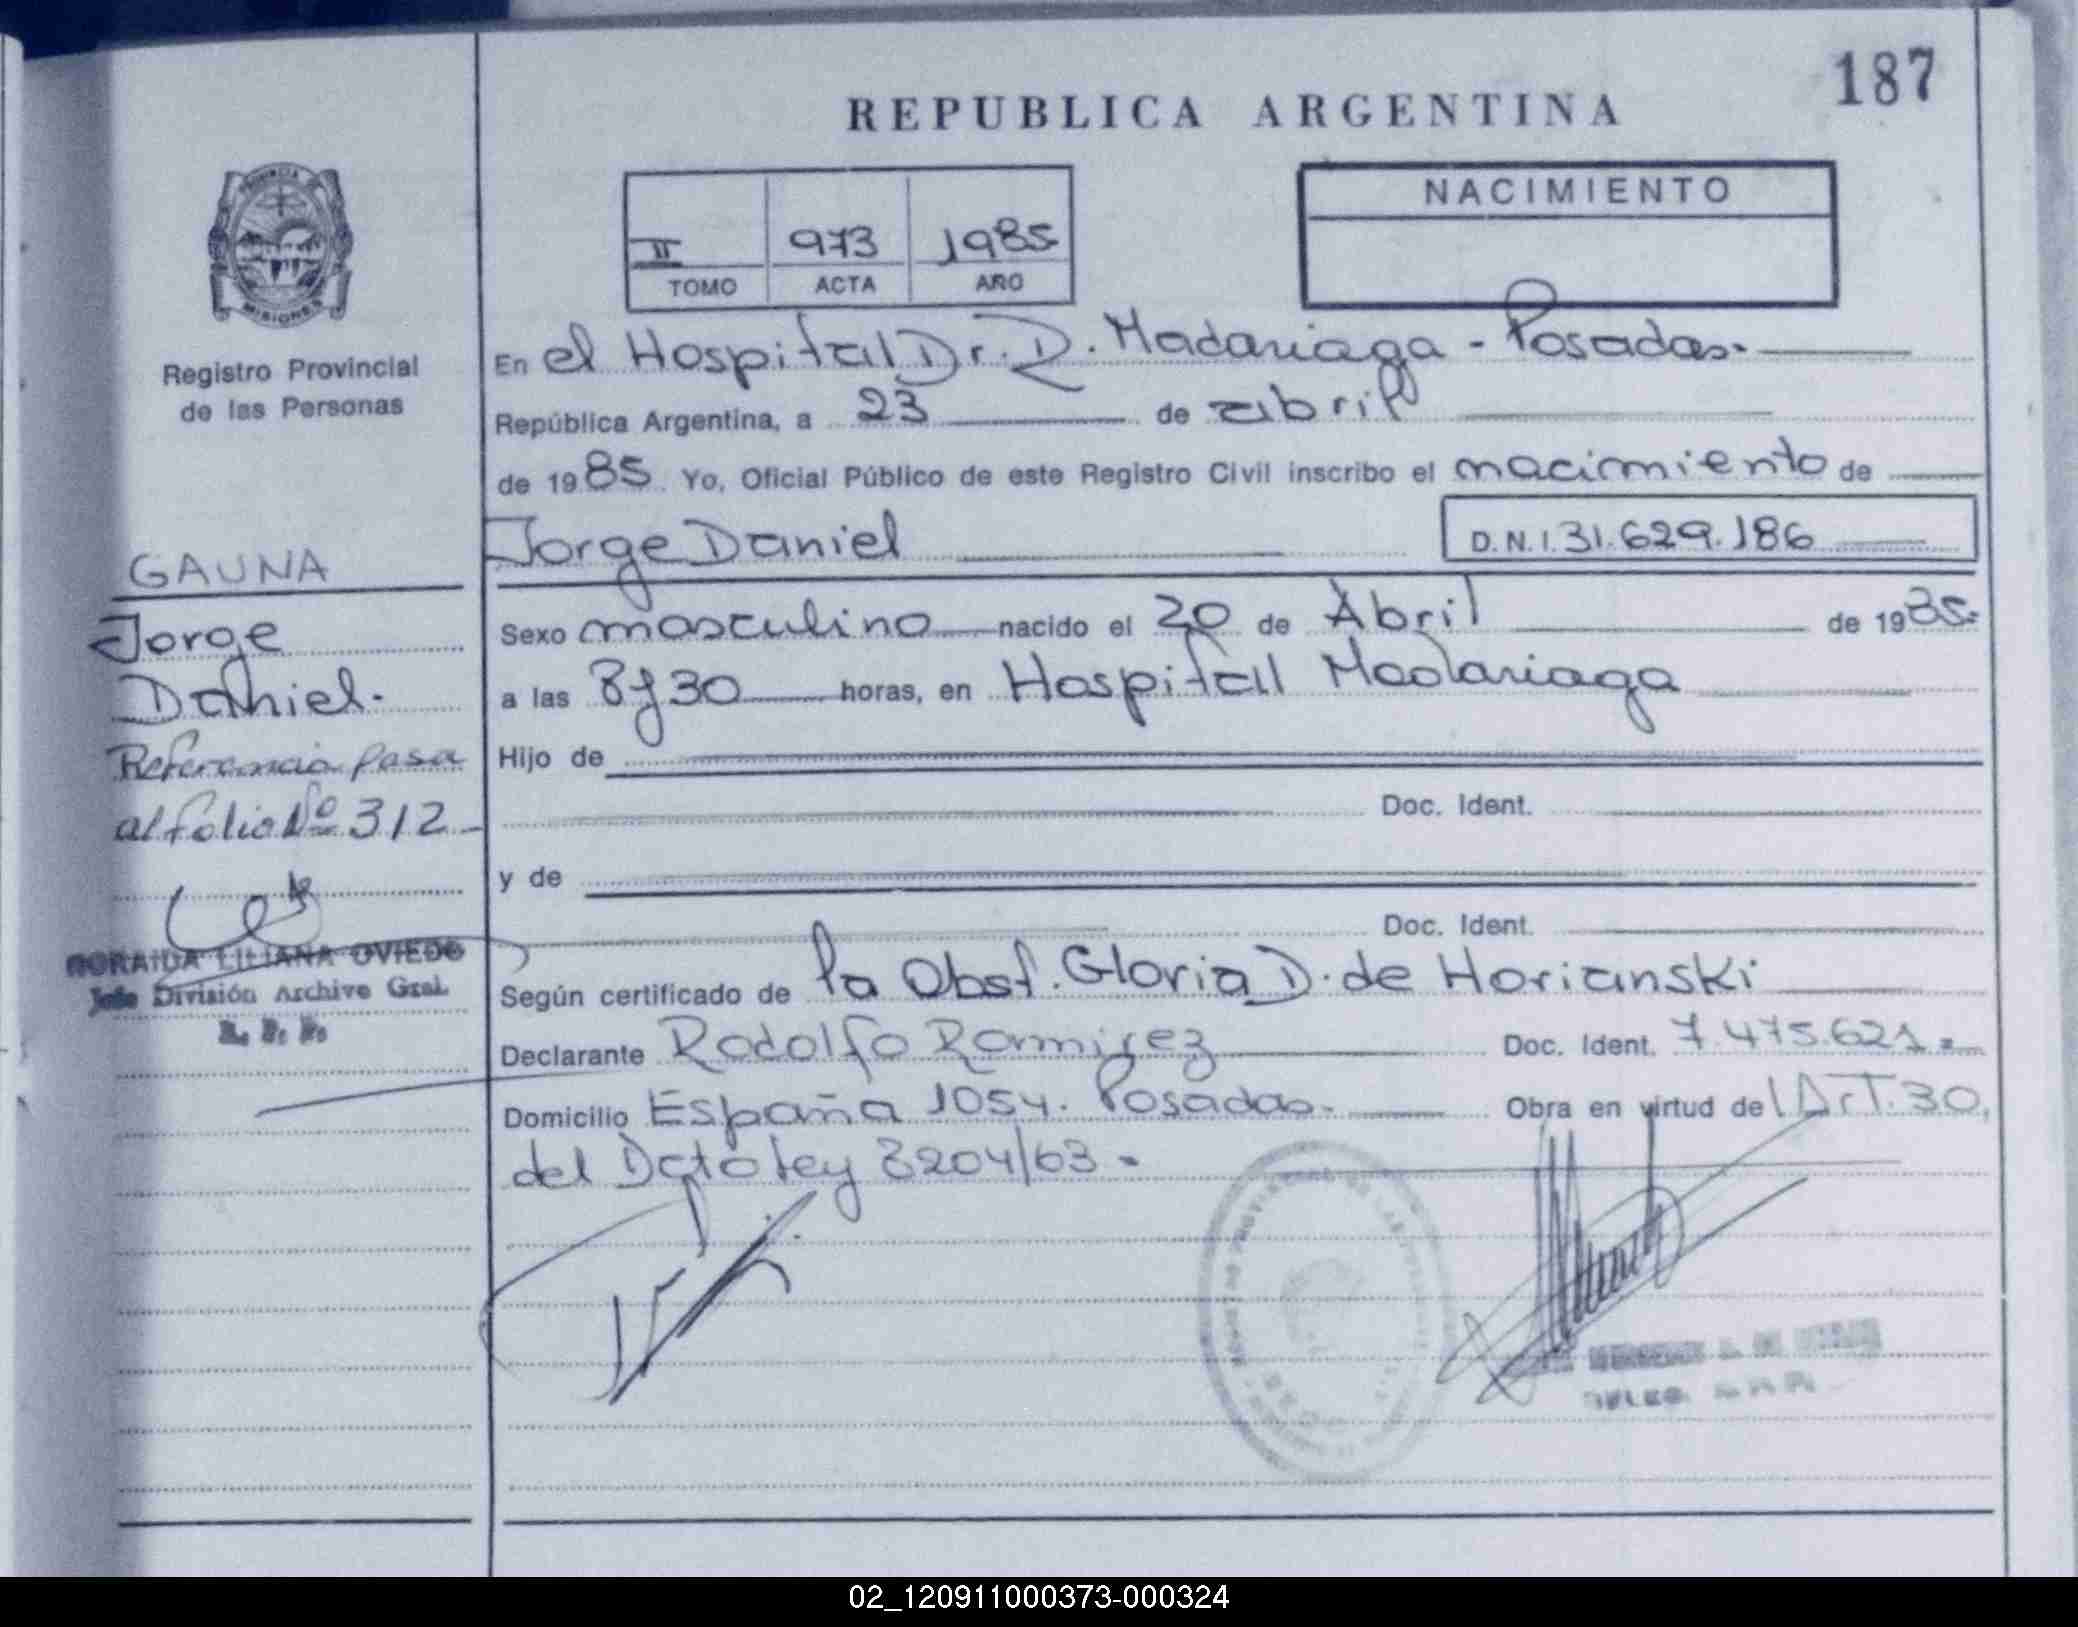 187
REPUBLICA ARGENTINA
II 973 1985
TOMO ACTA AÑO
NACIMIENTO
PROVINCIA DE
MISIONES
Registro Provincial
de las Personas
GAUNA
Jorge
Daniel.
Referencia pasa
al folio Nº 312
LILIANA OVIEDO
Jefe División Archivo Gral.
R. P. P.
En el Hospital Dr. R. Madariaga - Posadas.
República Argentina, a 23 de abril
de 1985. Yo, Oficial Público de este Registro Civil inscribo el nacimiento de
Jorge Daniel D.N.I. 31.629.186
Sexo masculino nacido el 20 de Abril de 1985.
a las 8 y 30 horas, en Hospital Madariaga
Hijo de
Doc. Ident.
y de
Doc. Ident.
Según certificado de la Obst. Gloria D. de Horianski
Declarante Rodolfo Ramirez Doc. Ident. 7.475.621
Domicilio España 1054. Posadas. Obra en virtud del Art. 30,
del Dcto ley 8204/63
02_120911000373-000324